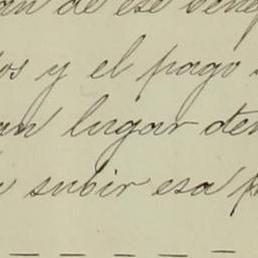 an de ese bene
os y el pago
an lugar den
a subir esa